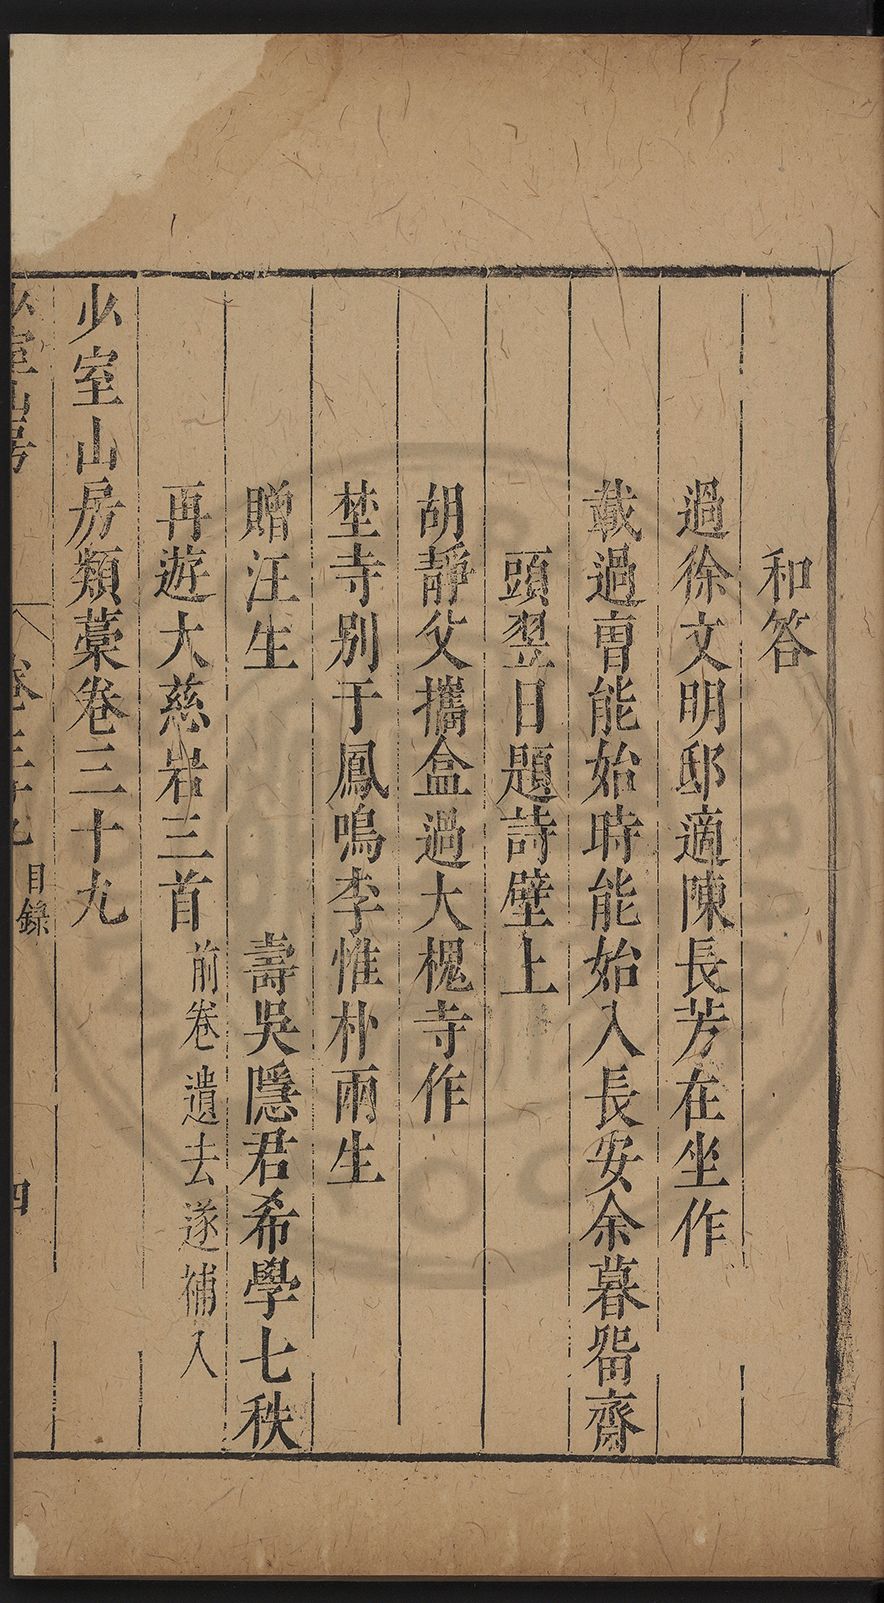 和答
過徐文明邸適陳長芳在坐作
載過曺能始時能始入長安余暮畱齋
頭翌日題詩壁上
胡靜父攜盒過大槐寺作
埜寺别于鳳鳴李惟朴兩生
贈汪生 壽吳隱君希學七秩
再遊大慈岩三首 前卷遺去遂補入
少室山房類藁卷三十九
少室山房 卷三十九 目錄 四